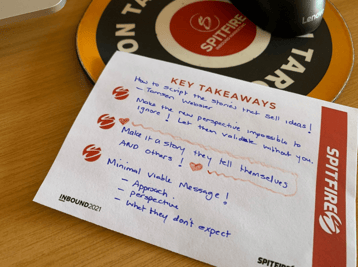 Lend
ON TA
SPITFIRE
TARG
KEY TAKEAWAYS
How to script the stories that sell ideas!
- Tamsen Webster
Make the new perspective impossible to
ignore! Let them validate without you.
Make it a story they tell themselves
AND others!
Minimal Viable Message!
- Approach.
- perspective
- what they don't expect
INBOUND2021
SPITFIRE
SPITFIRE